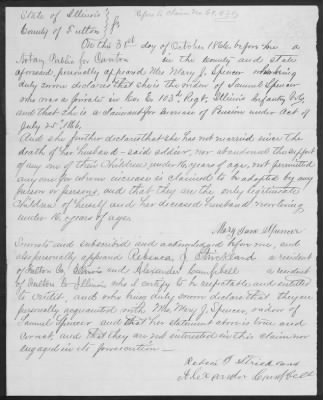 State of Illinois } ss Refers to Claim No.
County of Fulton
On this 31st day of October 1866, before me a
Notary Public for Canton in the County and State
aforesaid, personally appeared Mrs. Mary J. Spencer who being
duly sworn declares that she is the widow of Samuel Spencer
who was a private in Co. E 103d Regt. Illinois Infantry Vols,
and that she is a Claimant for Increase of Pension under Act of
July 25th 1866,
And she further declares that she has not married since the
death of her husband - said soldier, nor abandoned the support
of any one of their Children under 16 years of age, nor permitted
any one for whom increase is claimed to be adopted by any
person or persons, and that they are the only legitimate
Children of herself and her deceased husband now living
under 16 years of age.
Mary Jane Spencer
Sworn to and subscribed and acknowledged before me, and
also personally appeared Rebecca J. Strickland a resident
of Fulton Co, Illinois and Alexander Campbell a resident
of Fulton Co Illinois who I certify to be respectable and entitled
to credit, and who being duly sworn declare that they are
personally acquainted with Mrs. Mary J. Spencer, widow of
Samuel Spencer and that her statement above is true and
correct, and that they are not interested in this claim nor
engaged in its prosecution -
Alexander Campbell